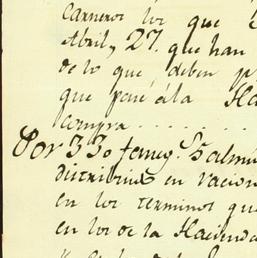 carneros los que
Abril, 27. que han
de lo que deben p
que pasé á la Ha
compra
Por 330 faneg.s de almu
distribuid en racion
en los terminos que
en los de la Hacienda